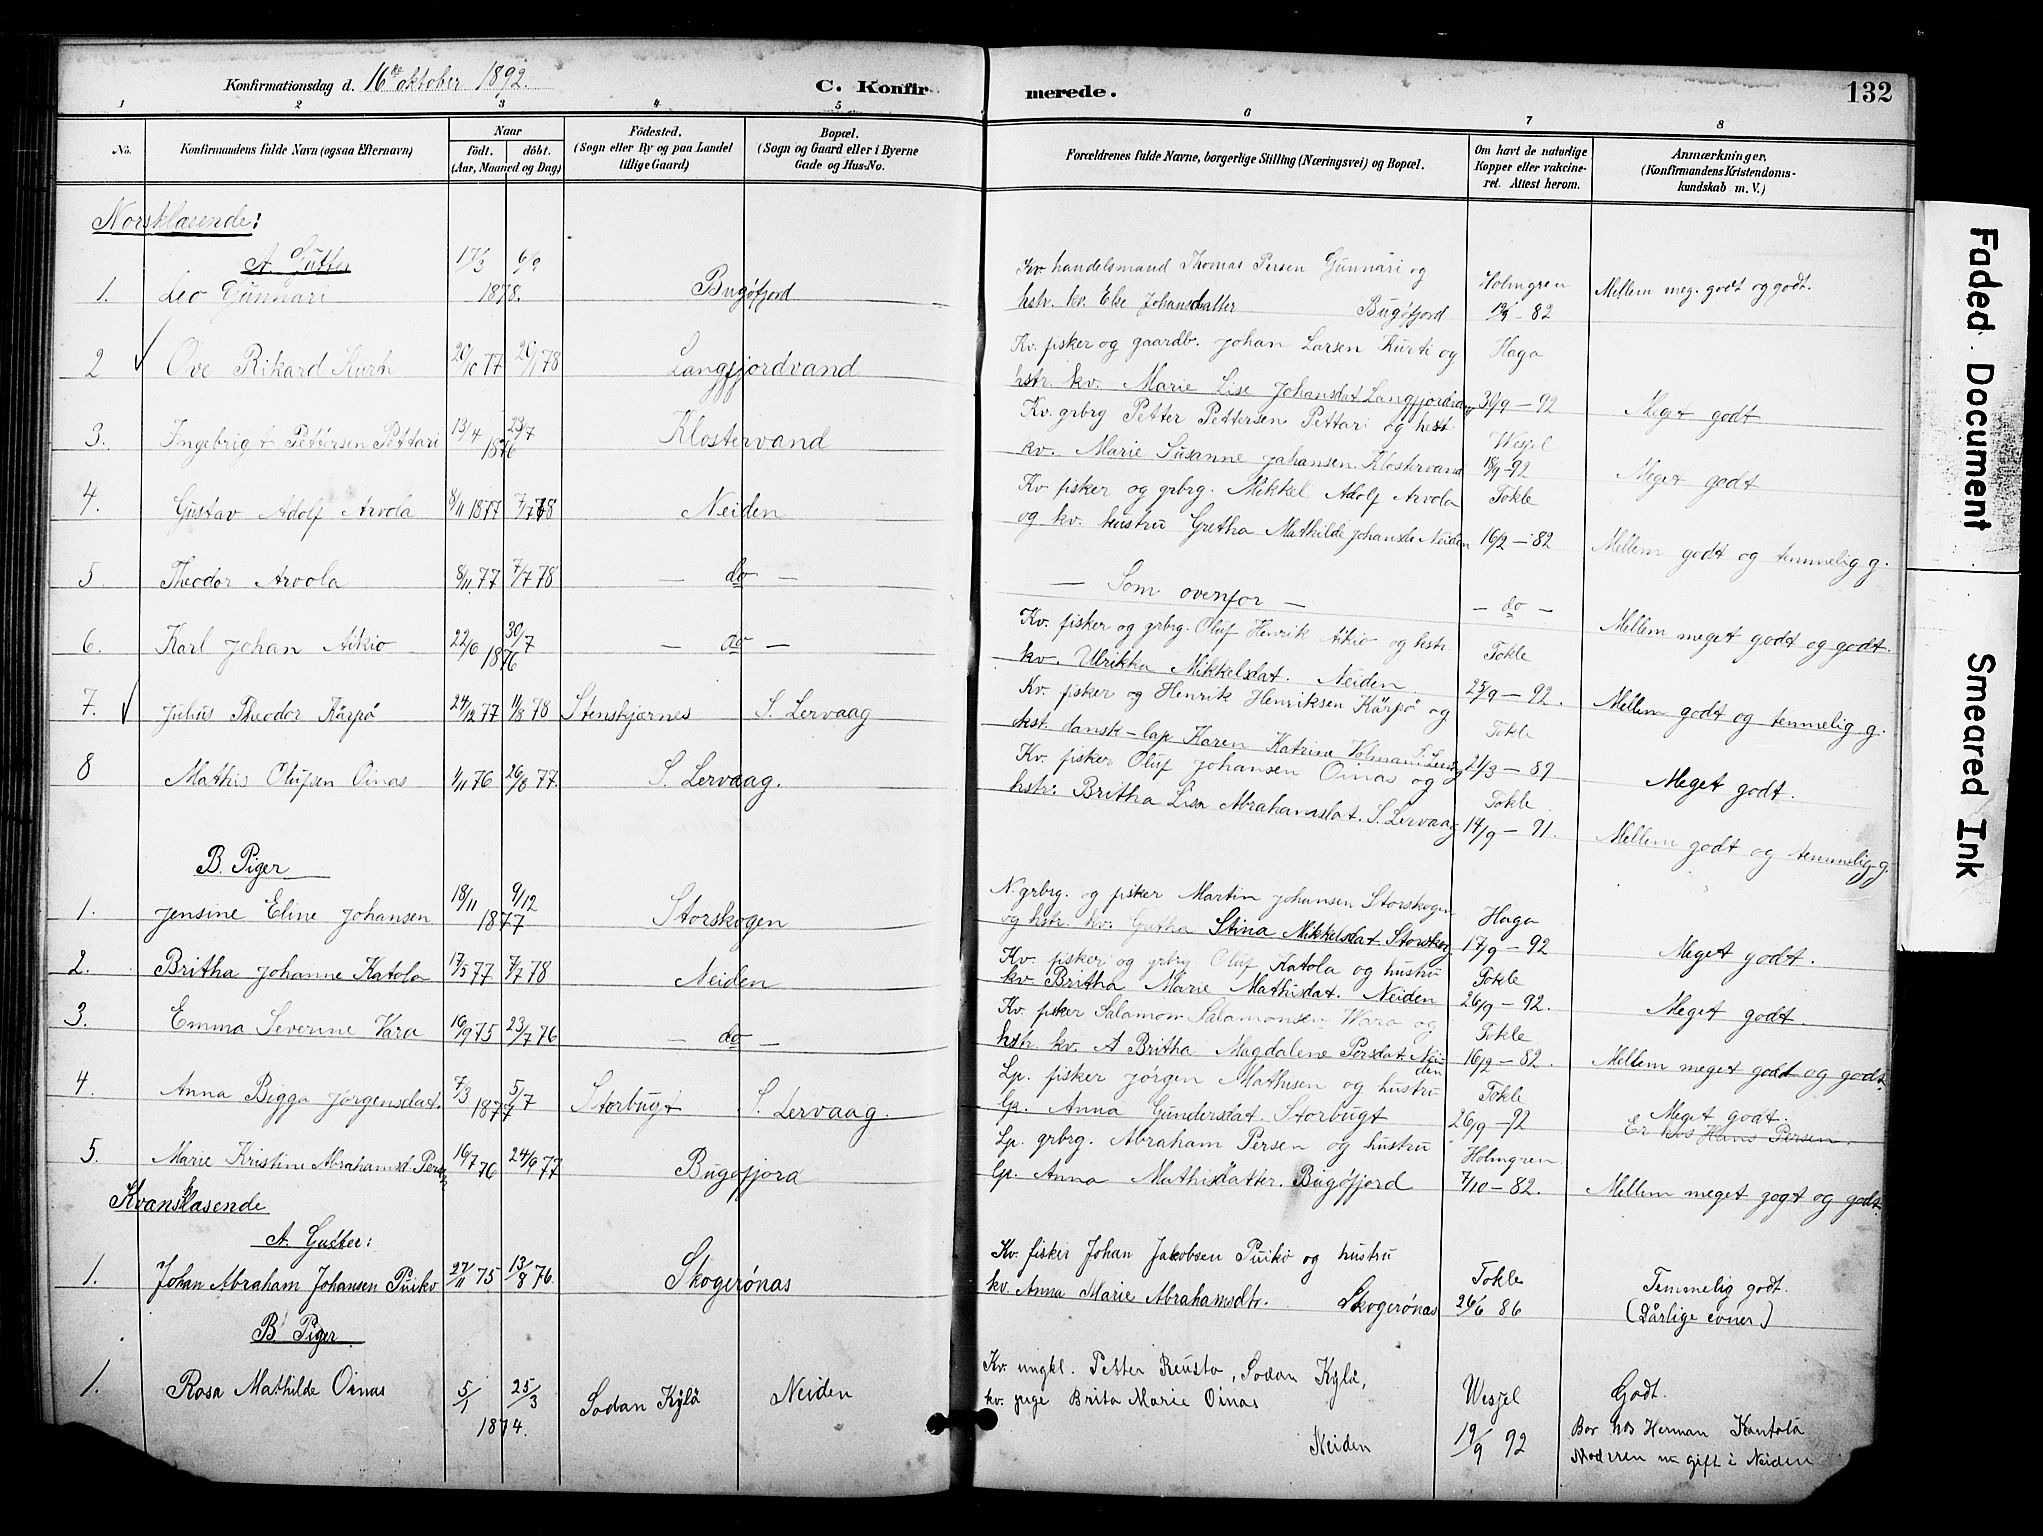 Konfirmationsdag d. 16de oktober 1892.
C. Konfirmerede.
132
1 2 3 4 5 6 7 8
No.
Konfirmandens fulde Navn (ogsaa Efternavn)
Naar
födt. döbt.
(Aar, Maaned og Dag)
Födested.
(Sogn eller By og paa Landet
tillige Gaard)
Bopæl.
(Sogn og Gaard eller i Byerne
Gade og Hus-No.
Forældrenes fulde Navne, borgerlige Stilling (Næringsvei) og Bopæl.
Om havt de naturlige
Kopper eller vakcine-
ret. Attest herom.
Anmærkninger,
(Konfirmandens Kristendoms-
kundskab m. V.)
Norsklæsende:
A. Gutter
1. Leo Gunnari 17/3 6/9 1878. Bugöfjord
Kv. handelsmand Thomas Persen Gunnari og
hstr. kv. Else Johansdatter Bugöfjord
Holmgren
- 82
Mellem meg. godt og godt.
2 Ove Rikard Kurti 20/10 77 20/1 78 Langfjordvand
Kv. fisker og gaardb. Johan Larsen Kurti og
hstr. kv. Marie Lise Johansdat Langfjordvand
Haga
30/9 - 92
Meget godt
3. Ingebrigt Pettersen Pettari 13/4 23/7 1876 Klostervand
Kv. grbrg Petter Pettersen Pettari og hest
kv. Marie Susanne Johansen. Klostervand
Wesjel
18/9 - 92
Meget godt
4. Gustav Adolf Arvola 8/11 1877 7/7 78 Neiden
Kv fisker og grbrg. Mikkel Adolf Arvola
og kv. hustru Gretha Mathilde Johansdt Neiden
Tokle
16/2 - 82
Mellem godt og temmelig g.
5 Theodor Arvola 8/11. 77 7/7 78 - do -
- Som ovenfor -
- do -
Mellem meget godt og godt.
6. Karl Johan Aikio 22/6 30/7 1876 - do -
Kv. fisker og grbrg. Oluf Henrik Aikio og hstr.
kv. Ulrikka Mikkelsdat. Neiden
Tokle
25/9 - 92.
Mellem godt og temmelig g.
7. Julius Theodor Kärpö 24/12 77 11/8 78 Stenskjærnes S. Lervaag
Kv. fisker og Henrik Henriksen Kärpö og
hst. dansk-lap Karen Katrine
Tokle
21/3 - 89
Meget godt.
8 Mathis Olufsen Oinas 1/11 76 26/8 77. S. Lervaag.
Kv. fisker Oluf Johansen Oinas og
hstr. Britha Lisa Abrahamsdat. S. Lervaag
Tokle
14/9 - 91.
Mellem godt og temmelig g.
B. Piger
1. Jensine Eline Johansen 18/11 9/12 1877 Storskogen
N grbrg. og fisker Martin Johansen Storskogen
og hstr. kv. Gretha Stina Mikkelsdat Storskog
Haga
17/9 - 92
Meget godt.
2. Britha Johanne Katola 17/5 77 7/7 78 Neiden
Kv. fisker og grbrg Oluf Katola og hustru
kv Britha Marie Mathisdat. Neiden
Tokle
26/9 - 92.
Meget godt.
3. Emma Severine Vara 16/9 75 23/7 76 - do -
Kv. fisker Salamon Salamonsen Wara og
hstr. kv. A Britha Magdalene Persdat. Neiden
Tokle
16/2 - 82.
Mellem meget godt og godt.
4. Anna Bigga Jörgensdat. 7/3 5/7 1877 Storbugt S. Lervaag.
Lp. fisker Jörgen Mathisen og hustru
lp. Anna Gundersdat. Storbugt
Tokle
26/9 - 92
Meget godt.
Er hos Hans Persen.
5. Marie Kristine Abrahamsd. Persen 16/7 76 24/6 77 Bugöfjord
Lp. grbrg. Abraham Persen og hustru
lp. Anna Mathisdatter. Bugöfjord
Holmgren
7/10 - 82.
Mellem meget gogt og godt.
Kvænsklæsende
A. Gutter:
1. Johan Abraham Johansen Puiko 27/11 75 13/8 76 Skogerönas
Kv. fisker Johan Jakobsen Puiko og hustru
kv. Anna Marie Abrahamsdtr. Skogerönas
Tokle
26/6 86
Temmelig godt.
(Dårlige evner)
B. Piger
1. Rosa Mathilde Oinas 5/1 25/3 1874. Sodan Kylä Neiden
Kv. ungkl. Petter Reusta, Sodan Kylä,
kv. pige Brita Marie Oinas
Neiden
Wesjel
19/9 92
Godt.
Bor hos Herman Kantola
Modren nu gift i Neiden
Faded Document
Smeared Ink